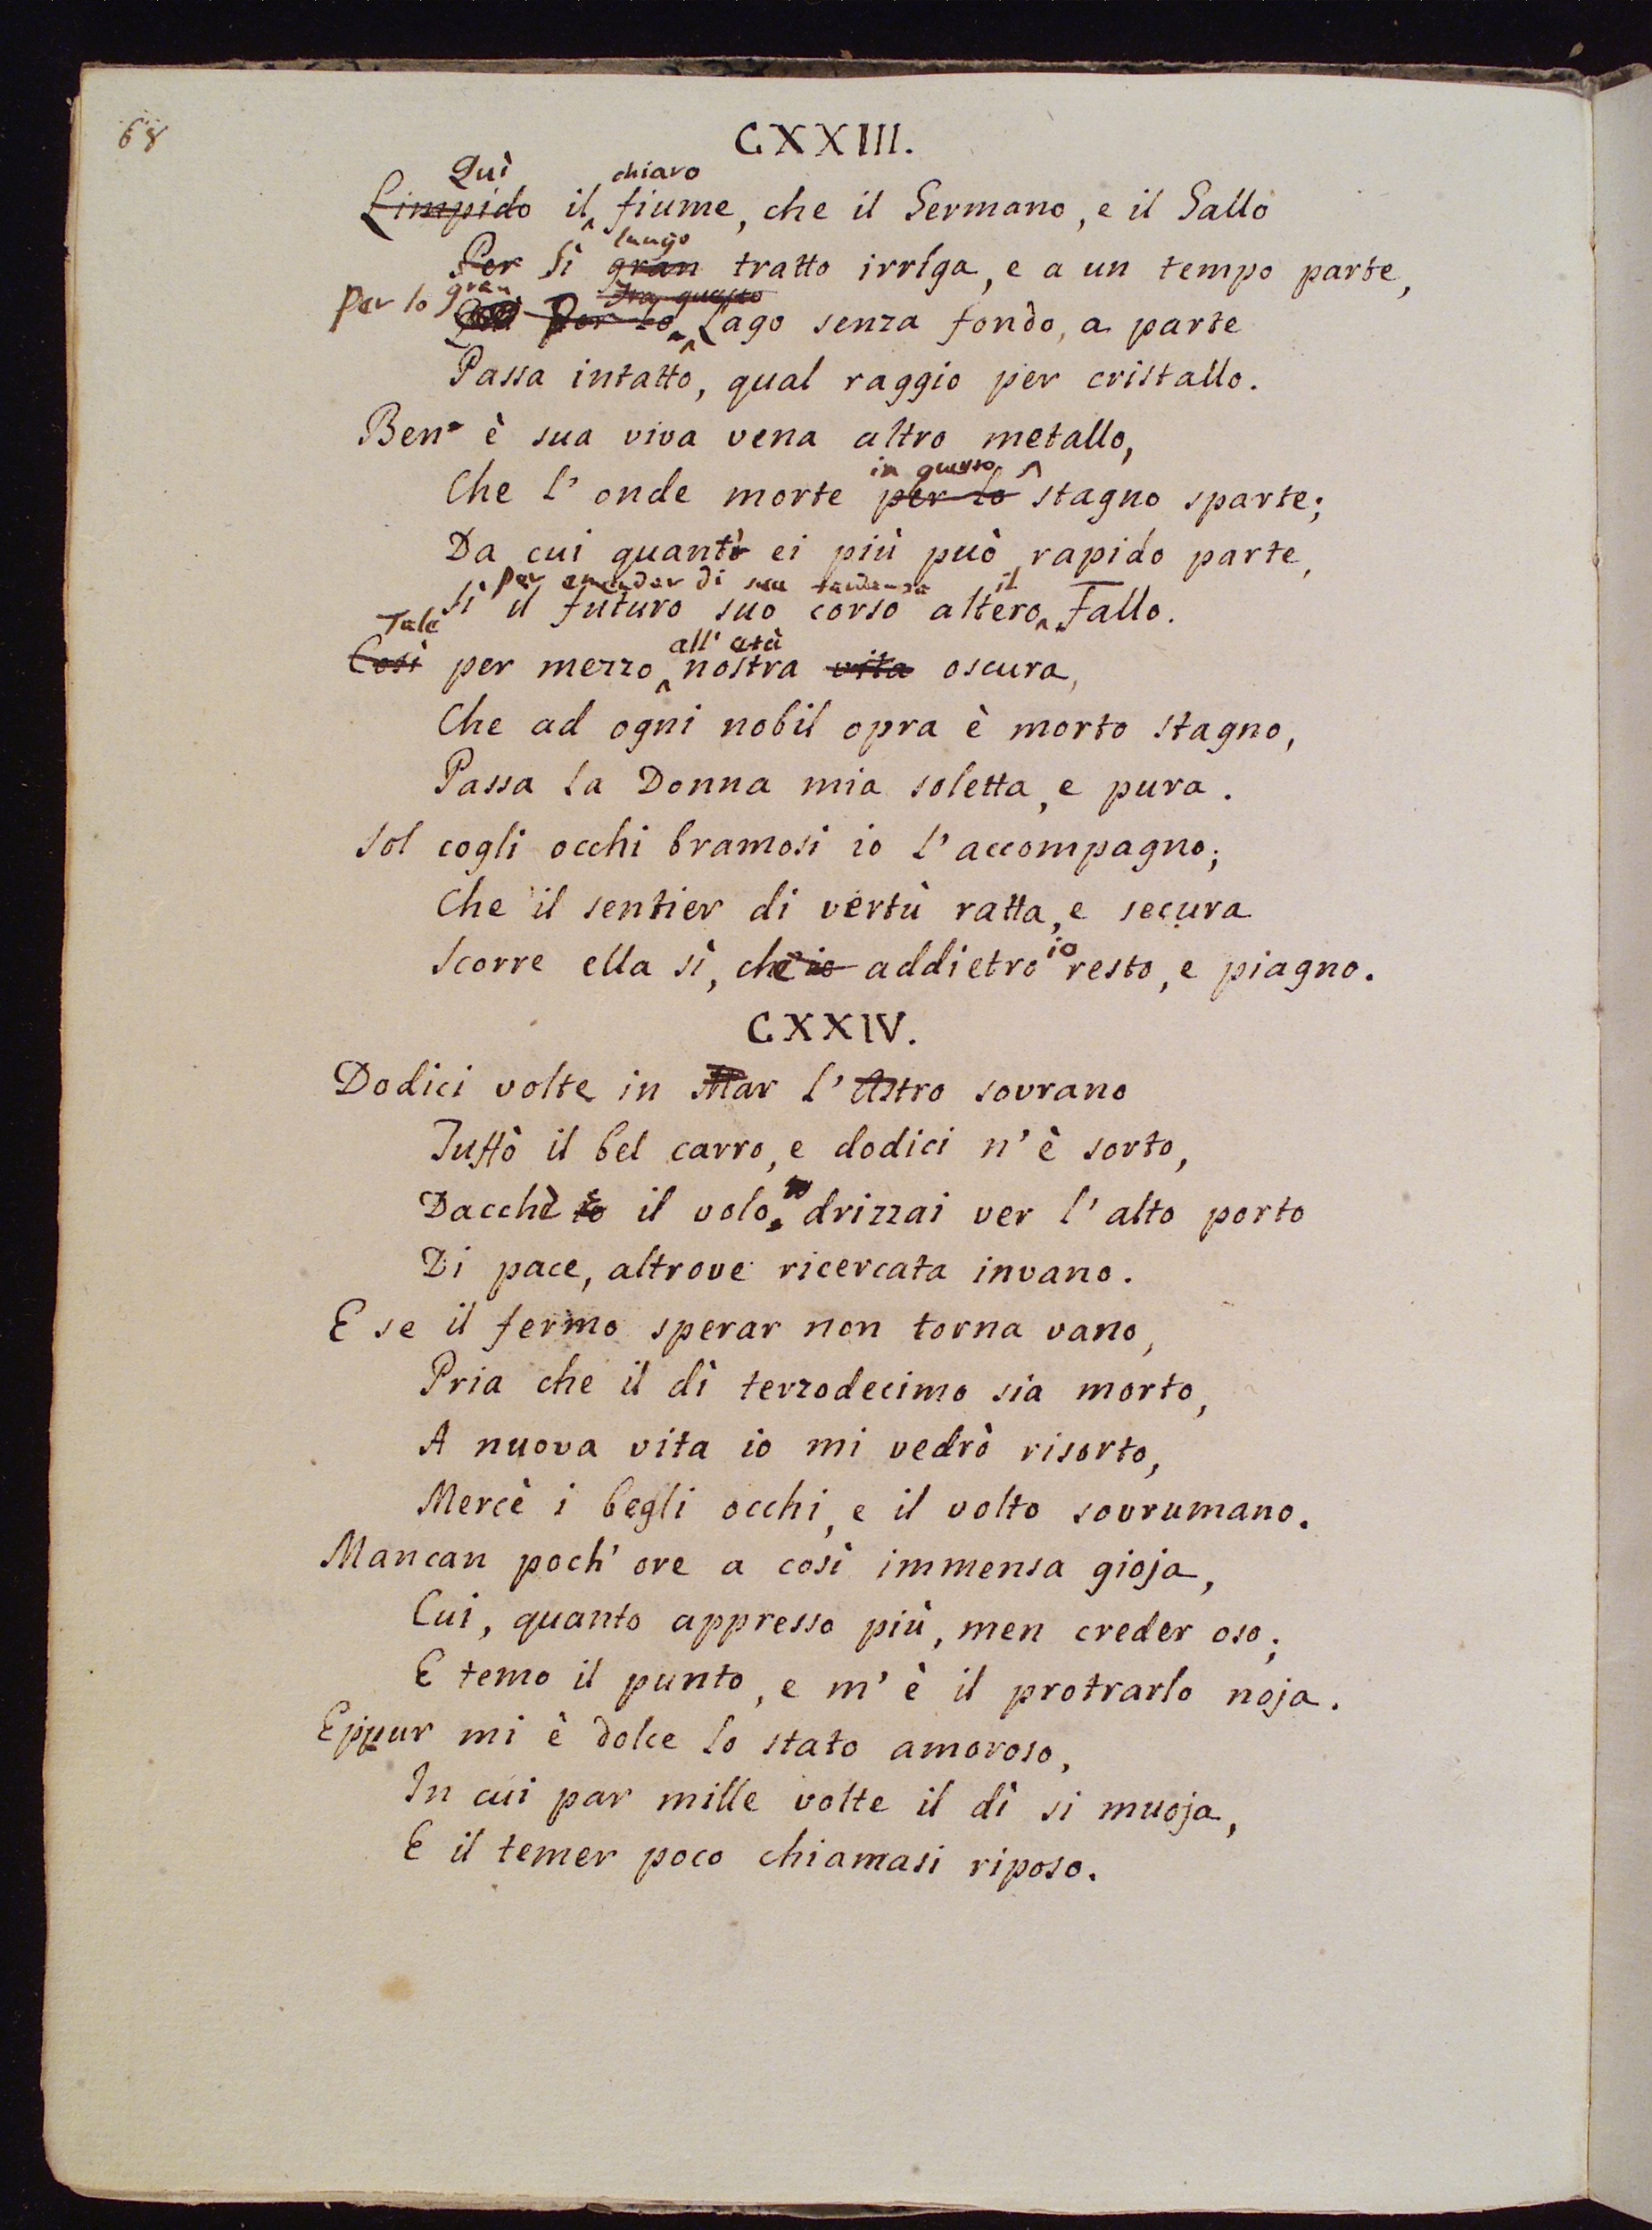 68
CXXIII.
Quì chiaro
Limpido il fiume, che il Germano, e il Gallo
lungo
Per sì gran tratto irríga, e a un tempo parte,
Per lo gran Fra questo
Per lo Lago senza fondo, a parte
Passa intatto, qual raggio per cristallo.
Ben è sua viva vena altro metallo,
in questo
Che l'onde morte per lo stagno sparte;
Da cui quanto ei più può rapido parte,
Per emendar di sua tardanza il
Sì il futuro suo corso altero fallo.
Tale all' età
Così per mezzo nostra vita oscura,
Che ad ogni nobil opra è morto stagno,
Passa la Donna mia soletta, e pura.
Sol cogli occhi bramosi io l'accompagno;
Che il sentier di vertù ratta, e secura
io
Scorre ella sì, che io addietro resto, e piagno.
CXXIV.
Dodici volte in Mar l'Astro sovrano
Tuffò il bel carro, e dodici n'è sorto,
io
Dacchè io il volo drizzai ver l'alto porto
Di pace, altrove ricercata invano.
E se il fermo sperar non torna vano,
Pria che il dì terzodecimo sia morto,
A nuova vita io mi vedrò risorto,
Mercè i begli occhi, e il volto sovrumano.
Mancan poch' ore a così immensa gioja,
Cui, quanto appresso più, men creder oso;
E temo il punto, e m'è il protrarlo noja.
Eppur mi è dolce lo stato amoroso,
In cui par mille volte il dì si muoja,
E il temer poco chiamasi riposo.